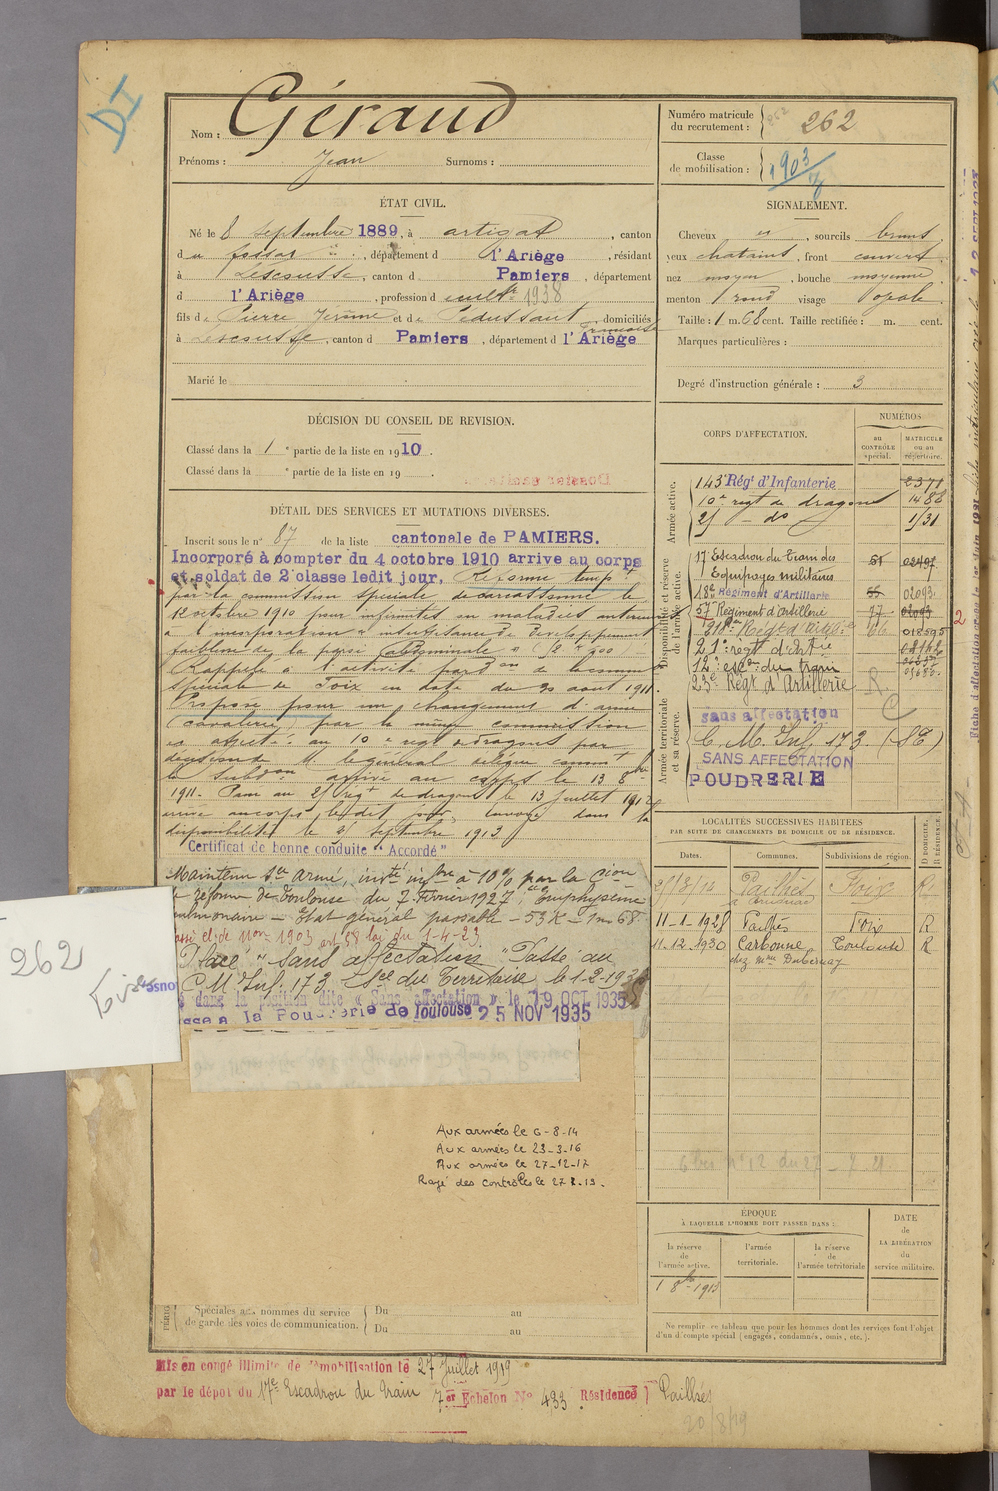 DI
Nom : Géraud
Prénoms : Jean Surnoms :
Numéro matricule du recrutement : 262
Classe de mobilisation : 1903
ÉTAT CIVIL.
Né le 8 septembre 1889, à artigat, canton
du fossat, département d l'Ariège, résidant
à Lescousse, canton d Pamiers, département
d l'Ariège, profession d cult.r 1938
fils de Pierre Jérôme et de Pedussaut Françoise, domiciliés
à Lescousse, canton d Pamiers, département d l'Ariège
Marié le
SIGNALEMENT.
Cheveux et, sourcils bruns,
yeux chatains, front couvert,
nez moyen, bouche moyenne,
menton rond visage ovale.
Taille : 1 m. 68 cent. Taille rectifiée : m. cent.
Marques particulières :
Degré d'instruction générale : 3
DÉCISION DU CONSEIL DE REVISION.
Classé dans la 1e partie de la liste en 1910.
Classé dans la e partie de la liste en 19 .
DÉTAIL DES SERVICES ET MUTATIONS DIVERSES.
Inscrit sous le n° 87 de la liste cantonale de PAMIERS.
Incorporé à compter du 4 octobre 1910 arrive au corps
et soldat de 2e classe ledit jour, Réformé tempre
par la commission spéciale de carcassonne le
12 octobre 1910 pour infirmités ou maladies antérieures
à l'incorporation "insuffisance de développement
faiblesse de la paroi abdominale"
Rappelé à l'activité par don de la comon
spéciale de Foix en date du 30 aout 1911.
Proposé pour un changement d'arme
(cavalerie) par la même commission
est affecté au 10e regt de dragons par
décision de M. le général délégué commt
la subdon arrivé au corps le 13 8bre
1911. Passé au 2 regt de dragons le 13 juillet 1912
arrivé au corps ledit jour, envoyé dans la
disponibilité le 25 septembre 1913
Certificat de bonne conduite "Accordé"
Maintenu sce armé, invté infre à 10% par la Cion
de réforme de Toulouse du 7 février 1927, "Emphysème
pulmonaire - Etat général passable - 53K - 1m 68
Passé cl. de mon 1903 art. 58 loi du 1-4-23.
Placé "sans affectation" Passé au
C.M. Inf. 173 Sce du Territoire le 1-2-193
dans la position dite « Sans affectation » le 19 OCT 1935
Passé à la Poudrerie de Toulouse 25 NOV 1935
262
Aux armées le 6-8-14
Aux armées le 23-3-16
Aux armées le 27-12-17
Rayé des contrôles le 27.8.19.
CORPS D'AFFECTATION.
NUMÉROS
au CONTRÔLE spécial.
MATRICULE ou au répertoire.
Armée active.
143e Régt d'Infanterie 2371
10e regt de dragons 1486
2 - do 1/31
Disponibilité et réserve de l'armée active.
17 Escadron du Train des Equipages militaires
18e Régiment d'Artillerie 02093
57e Régiment d'Artillerie 77
218e Régt d'artie 66 018595
21e régt d'artie
12e escon du train
23e Régt d'Artillerie
Armée territoriale et sa réserve.
sans affectation
C. M. Inf. 173
SANS AFFECTATION
POUDRERIE
LOCALITÉS SUCCESSIVES HABITÉES
PAR SUITE DE CHANGEMENTS DE DOMICILE OU DE RÉSIDENCE.
Dates. Communes. Subdivisions de région. D DOMICILE. R RÉSIDENCE.
Pailhès Foix R
11-1-1928 Pailhès Foix R
11-12-1930 Carbonne Toulouse R
chez mme Dubernay
ÉPOQUE
À LAQUELLE L'HOMME DOIT PASSER DANS :
la réserve de l'armée active.
l'armée territoriale.
la réserve de l'armée territoriale
DATE de LA LIBÉRATION du service militaire.
1 8bre 1913
Ne remplir ce tableau que pour les hommes dont les services font l'objet
d'un décompte spécial (engagés, condamnés, omis, etc.).
Spéciales aux hommes du service Du au
de garde des voies de communication. Du au
Mis en congé illimité de démobilisation le 27 juillet 1919
par le dépôt du 17e Escadron du Train 7er Echelon N° 433. Résidence Pailhès
20/8/19